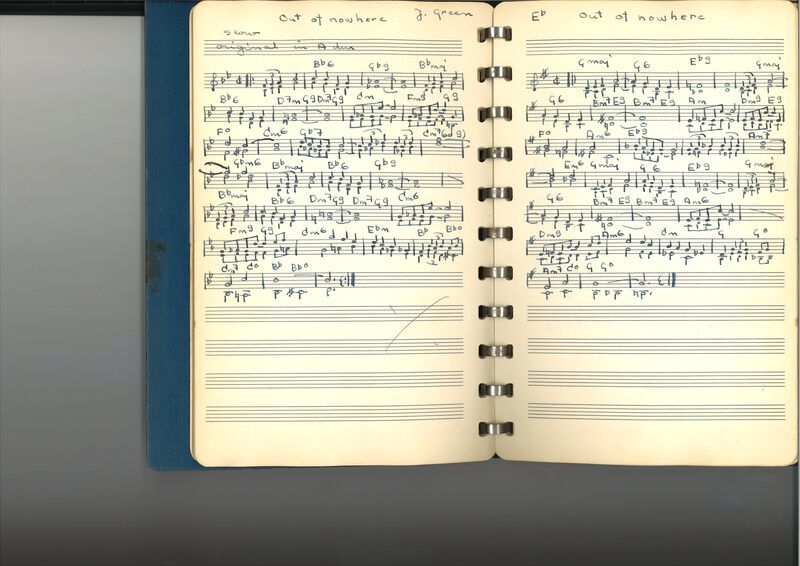 Out of nowhere J. Green
slow
original in A dur
Bb6 Gb9 Bbmaj
Bb6 D7m G9 D7m G9 Cm Fm9 G9
F° Cm6 Gb7 (Cm7
Gbm6 Bbmaj Bb6 Gb9
Bbmaj Bb6 Dm7 G9 Dm7 G9 Cm6
Fm9 G9 Cm6 Ebm Bb Bb°
Cm7 C° Bb Bb°
Eb Out of nowhere
Gmaj G6 Eb9 Gmaj
G6 Bm7 E9 Bm7 E9 Am Dm9 E9
F° Am6 Eb9 Am7
Em6 Gmaj G6 Eb9 Gmaj
G6 Bm7 E9 Bm7 E9 Am6
Dm9 Am6 Cm G G°
Am7 C° G G°